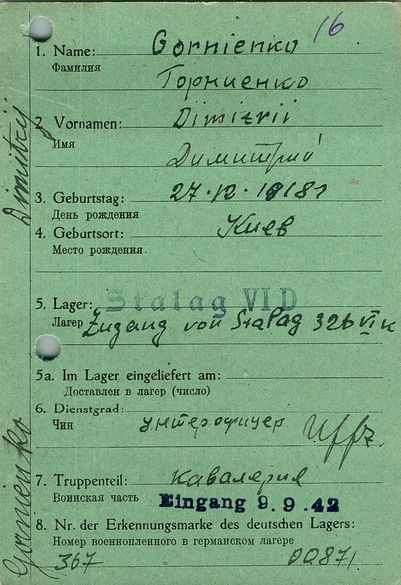 16
1. Name: Gornienko
Фамилия
Горниенко
2. Vornamen: Dimitrii
Имя
Димитрий
3. Geburtstag: 27.12.
День рождения
4. Geburtsort: Киев
Место рождения
5. Lager: Stalag VI D
Лагерь Zugang von Stalag 326 VI K
5a. Im Lager eingeliefert am:
Доставлен в лагерь (число)
6. Dienstgrad: унтерофицер Uffz.
Чин
7. Truppenteil: Кавалерия
Воинская часть Eingang 9.9.42
8. Nr. der Erkennungsmarke des deutschen Lagers:
Номер военнопленного в германском лагере
367
Gornienko Dimitrij